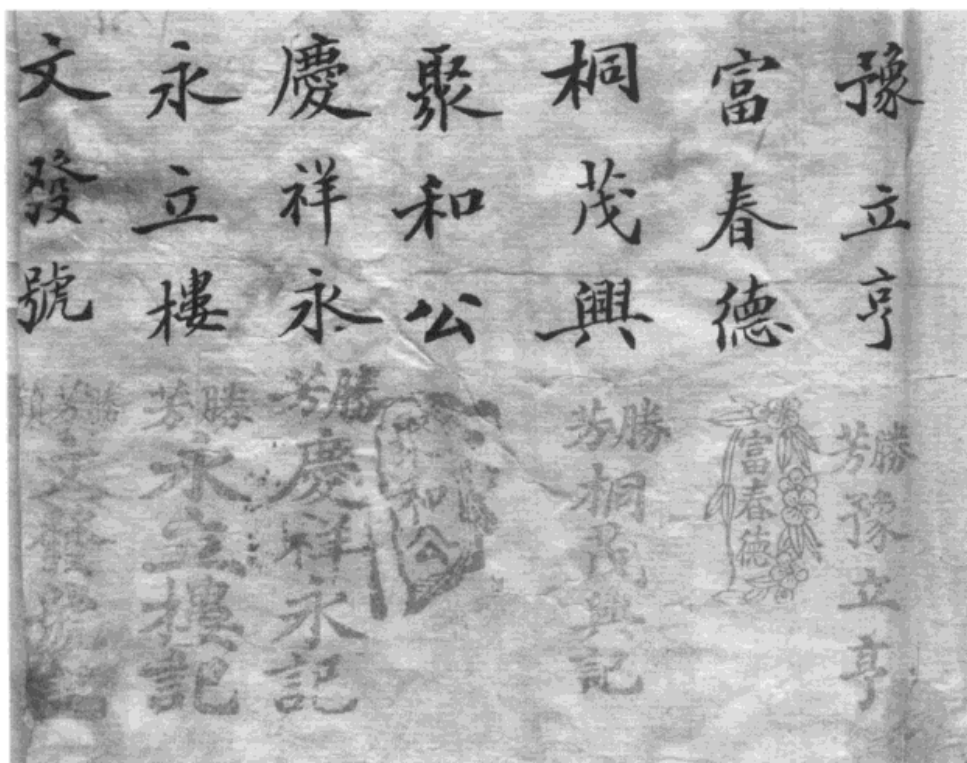 豫立亨
富春德
桐茂興
聚和公
慶祥永
永立樓
文發號
勝芳
豫立亨
富春德
勝芳
桐茂興記
和公
勝芳
慶祥永記
勝芳
永立樓記
勝芳
文發號記